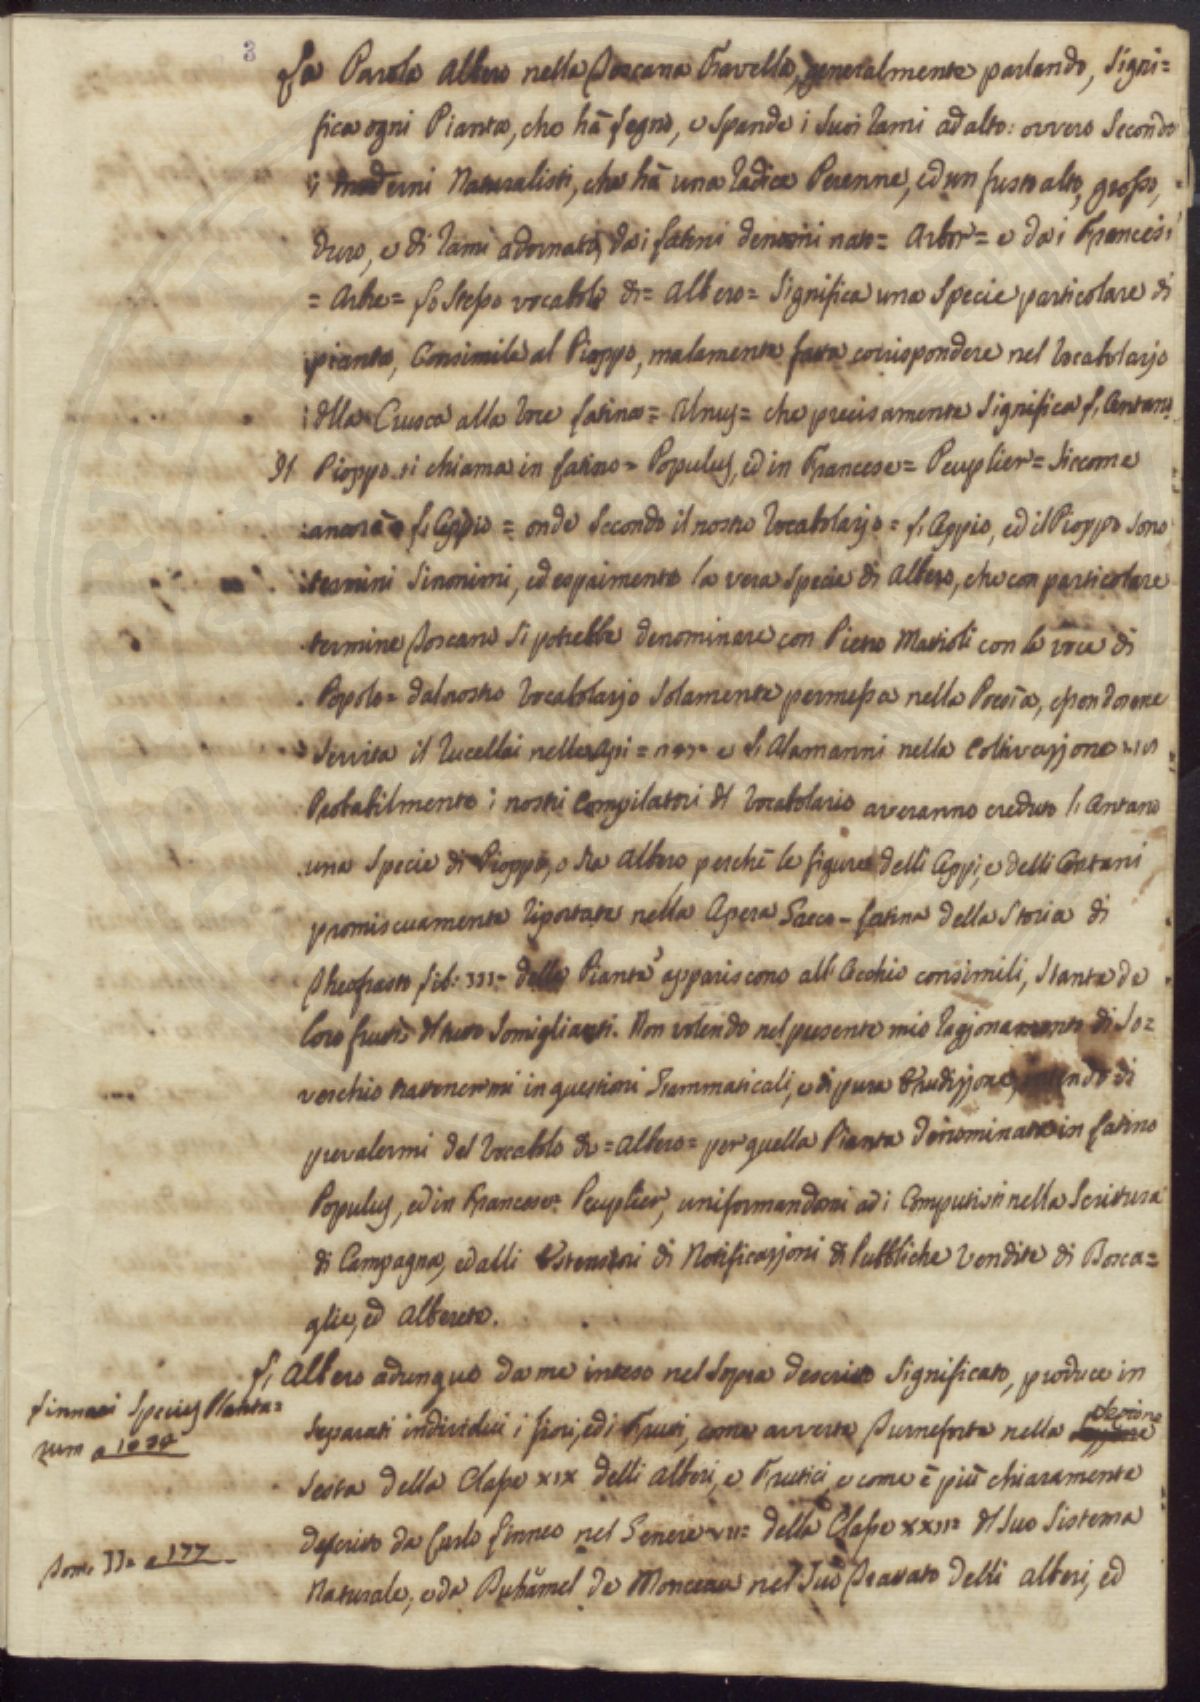 3
La Parola Albero nella Toscana Favella, generalmente parlando, Signi=
fica ogni Pianta, che hà Legno, e Spande i Suoi Rami ad alto: ovvero Secondo
i moderni Naturalisti, che hà una Radica Perenne, ed un fusto alto, grosso,
duro, e di Rami adornato, dai Latini denominato = Arbor = e dai Francesi
= Arbre = Lo Stesso vocabolo di = Albero = Significa una Specie particolare di
pianta, Consimile al Pioppo, malamente fatta corrispondere nel Vocabolario
della Crusca alla Voce Latina = Alnus = che precisamente Significa L'Antano
Il Pioppo si chiama in Latino = Populus, ed in Francese = Peuplier = Siccome
ancora L'Oppio = onde Secondo il nostro Vocabolario = L'Oppio, ed il Pioppo Sono
termini Sinonimi, ed esprimento la vera Specie di Albero, che con particolare
termine Toscano Si potrebbe denominare con Pietro Mattioli con la voce di
Popolo = dal nostro Vocabolario Solamente permessa nella Poesìa, essendosene
Servita il Rucellai nelle Api = e L'Alamanni nella Coltivazione
Probabilmente i nostri Compilatori del Vocabolario averanno creduto l'Antano
una Specie di Pioppo, o Sia Albero perchè le figure delli Oppi, e delli Ontani
promiscuamente Riportate nella Opera Greco-Latina della Storia di
Theofrasto Lib: III = delle Piante appariscono all'Occhio consimili, Stante de
Loro frutti del tutto Somiglianti. Non volendo nel presente mio Ragionamento di So=
verchio trattenermi in questioni Grammaticali, e di pura Erudizione, intendo di
prevalermi del Vocabolo di = Albero = per quella Pianta denominata in Latino
Populus, ed in Francese = Peuplier, uniformandomi ad i Computisti nella Scrittura
di Campagna, ed alli Estensori di Notificazioni di Pubbliche Vendite di Bosca=
glie, ed Alberete.
L'Albero adunque da me inteso nel Sopra descritto Significato, produce in
Linnaei Species Planta=
rum a 1034
Separati individui i fiori, ed i Frutti, come avverte Turneforte nella Sezione
Sesta della Classe XIX delli Alberi, e Frutici, e come è più chiaramente
descritto da Carlo Linneo nel Genere VII = della Classe XXII = del Suo Sistema
Tom. II a 177
Naturale, e da Duhamel de Monceau nel Suo Trattato delli Alberi, ed